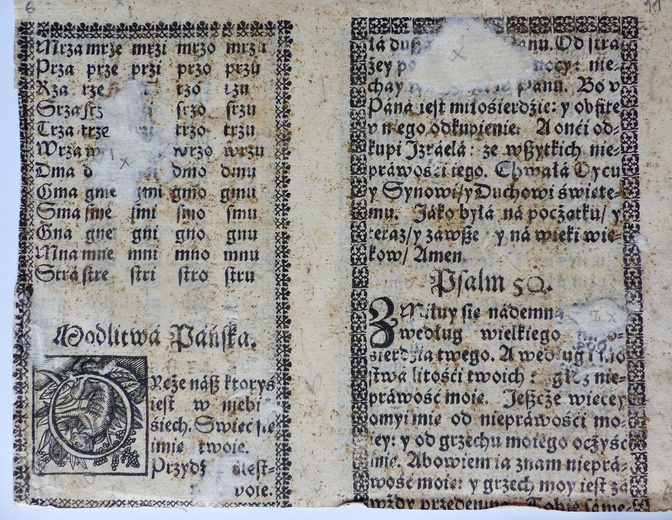 6
Mrza mrze mrzi mrzo mrzu
Prza prze przi przo przu
Rza rze rzo rzu
Srza srz srzo srzu
Trza trze trzo trzu
Wrza wrzo wrzu
Dma dmo dmu
Gma gme gmi gmo gmu
Sma sme smi smo smu
Gna gne gni gno gnu
Mna mne mni mno mnu
Stra stre stri stro stru
Modlitwá Páńska.
Oycże náß ktoryś
iest w niebi
śiech. Swięć się
imię twoie.
Przydź
11
łá dußá Pánu. Od stra
żey
chay w Pánu. Bo v
Páná iest miłośierdźie: y obfite
v niego odkupienie. A on ći od-
kupi Izráelá: ze wßytkich nie-
práwośći iego. Chwałá Oycu
y Synowi/ y Duchowi święte-
mu. Jáko byłá ná początku/ y
teraz/ y záwße: y ná wieki wie-
kow/ Amen.
Psalm 50.
ZMiłuy się nádemną
według wielkiego
śierdźia twego. A według
stwá litośći twoich: nie-
práwość moię. Jeßcze więcey
omyi mię od niepráwośći mo-
iey: y od grzechu moiego oczyść
mię. Abowiem ia znam niepra-
wość moię: y grzech moy iest zá
wżdy przedemną. Tobie